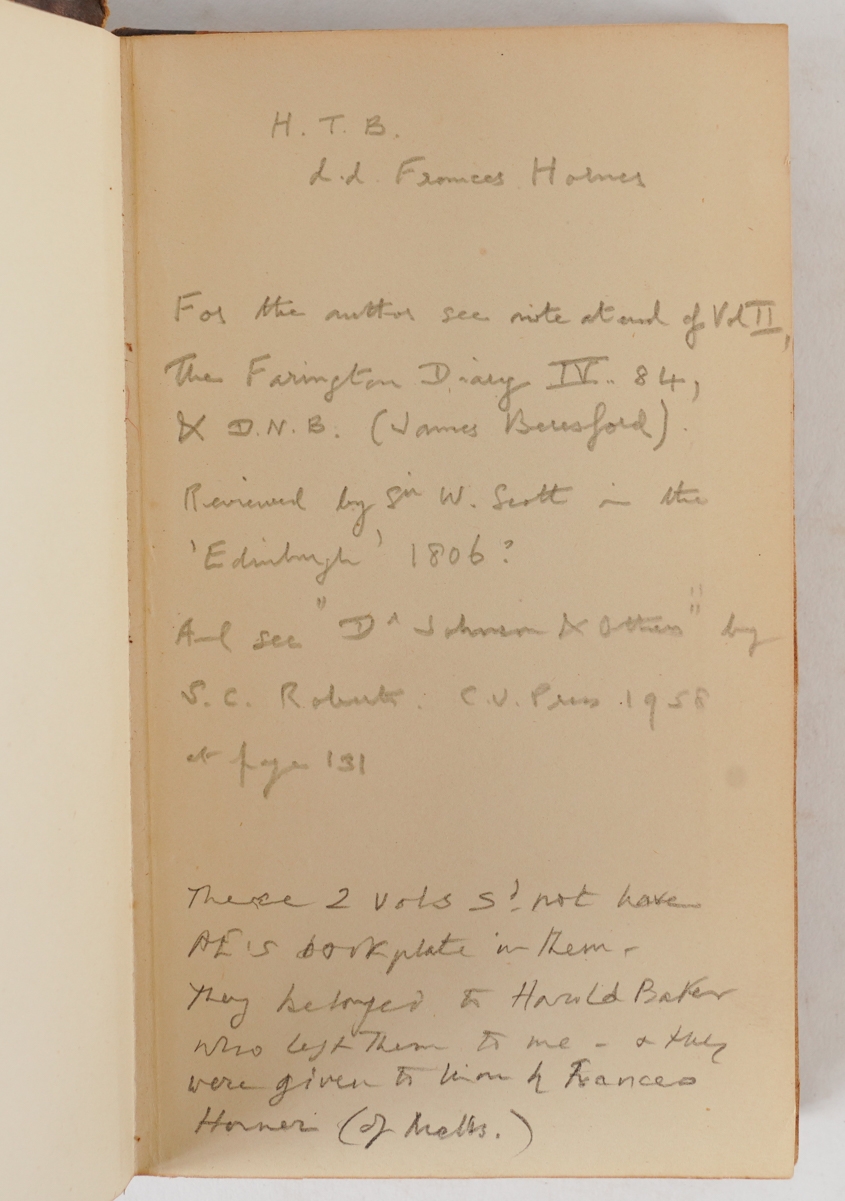 H. T. B.
d.d. Frances Horner
For the author see note at end of Vol II,
The Farington Diary IV. 84,
& D.N.B. (James Beresford).
Reviewed by Sir W. Scott in the
'Edinburgh' 1806?
And see "Dr Johnson & Others" by
S.C. Roberts. C.U. Press 1958
at page 131
These 2 vols sd. not have
AE's bookplate in them -
They belonged to Harold Baker
who left them to me - & they
were given to him by Frances
Horner (of Mells.)